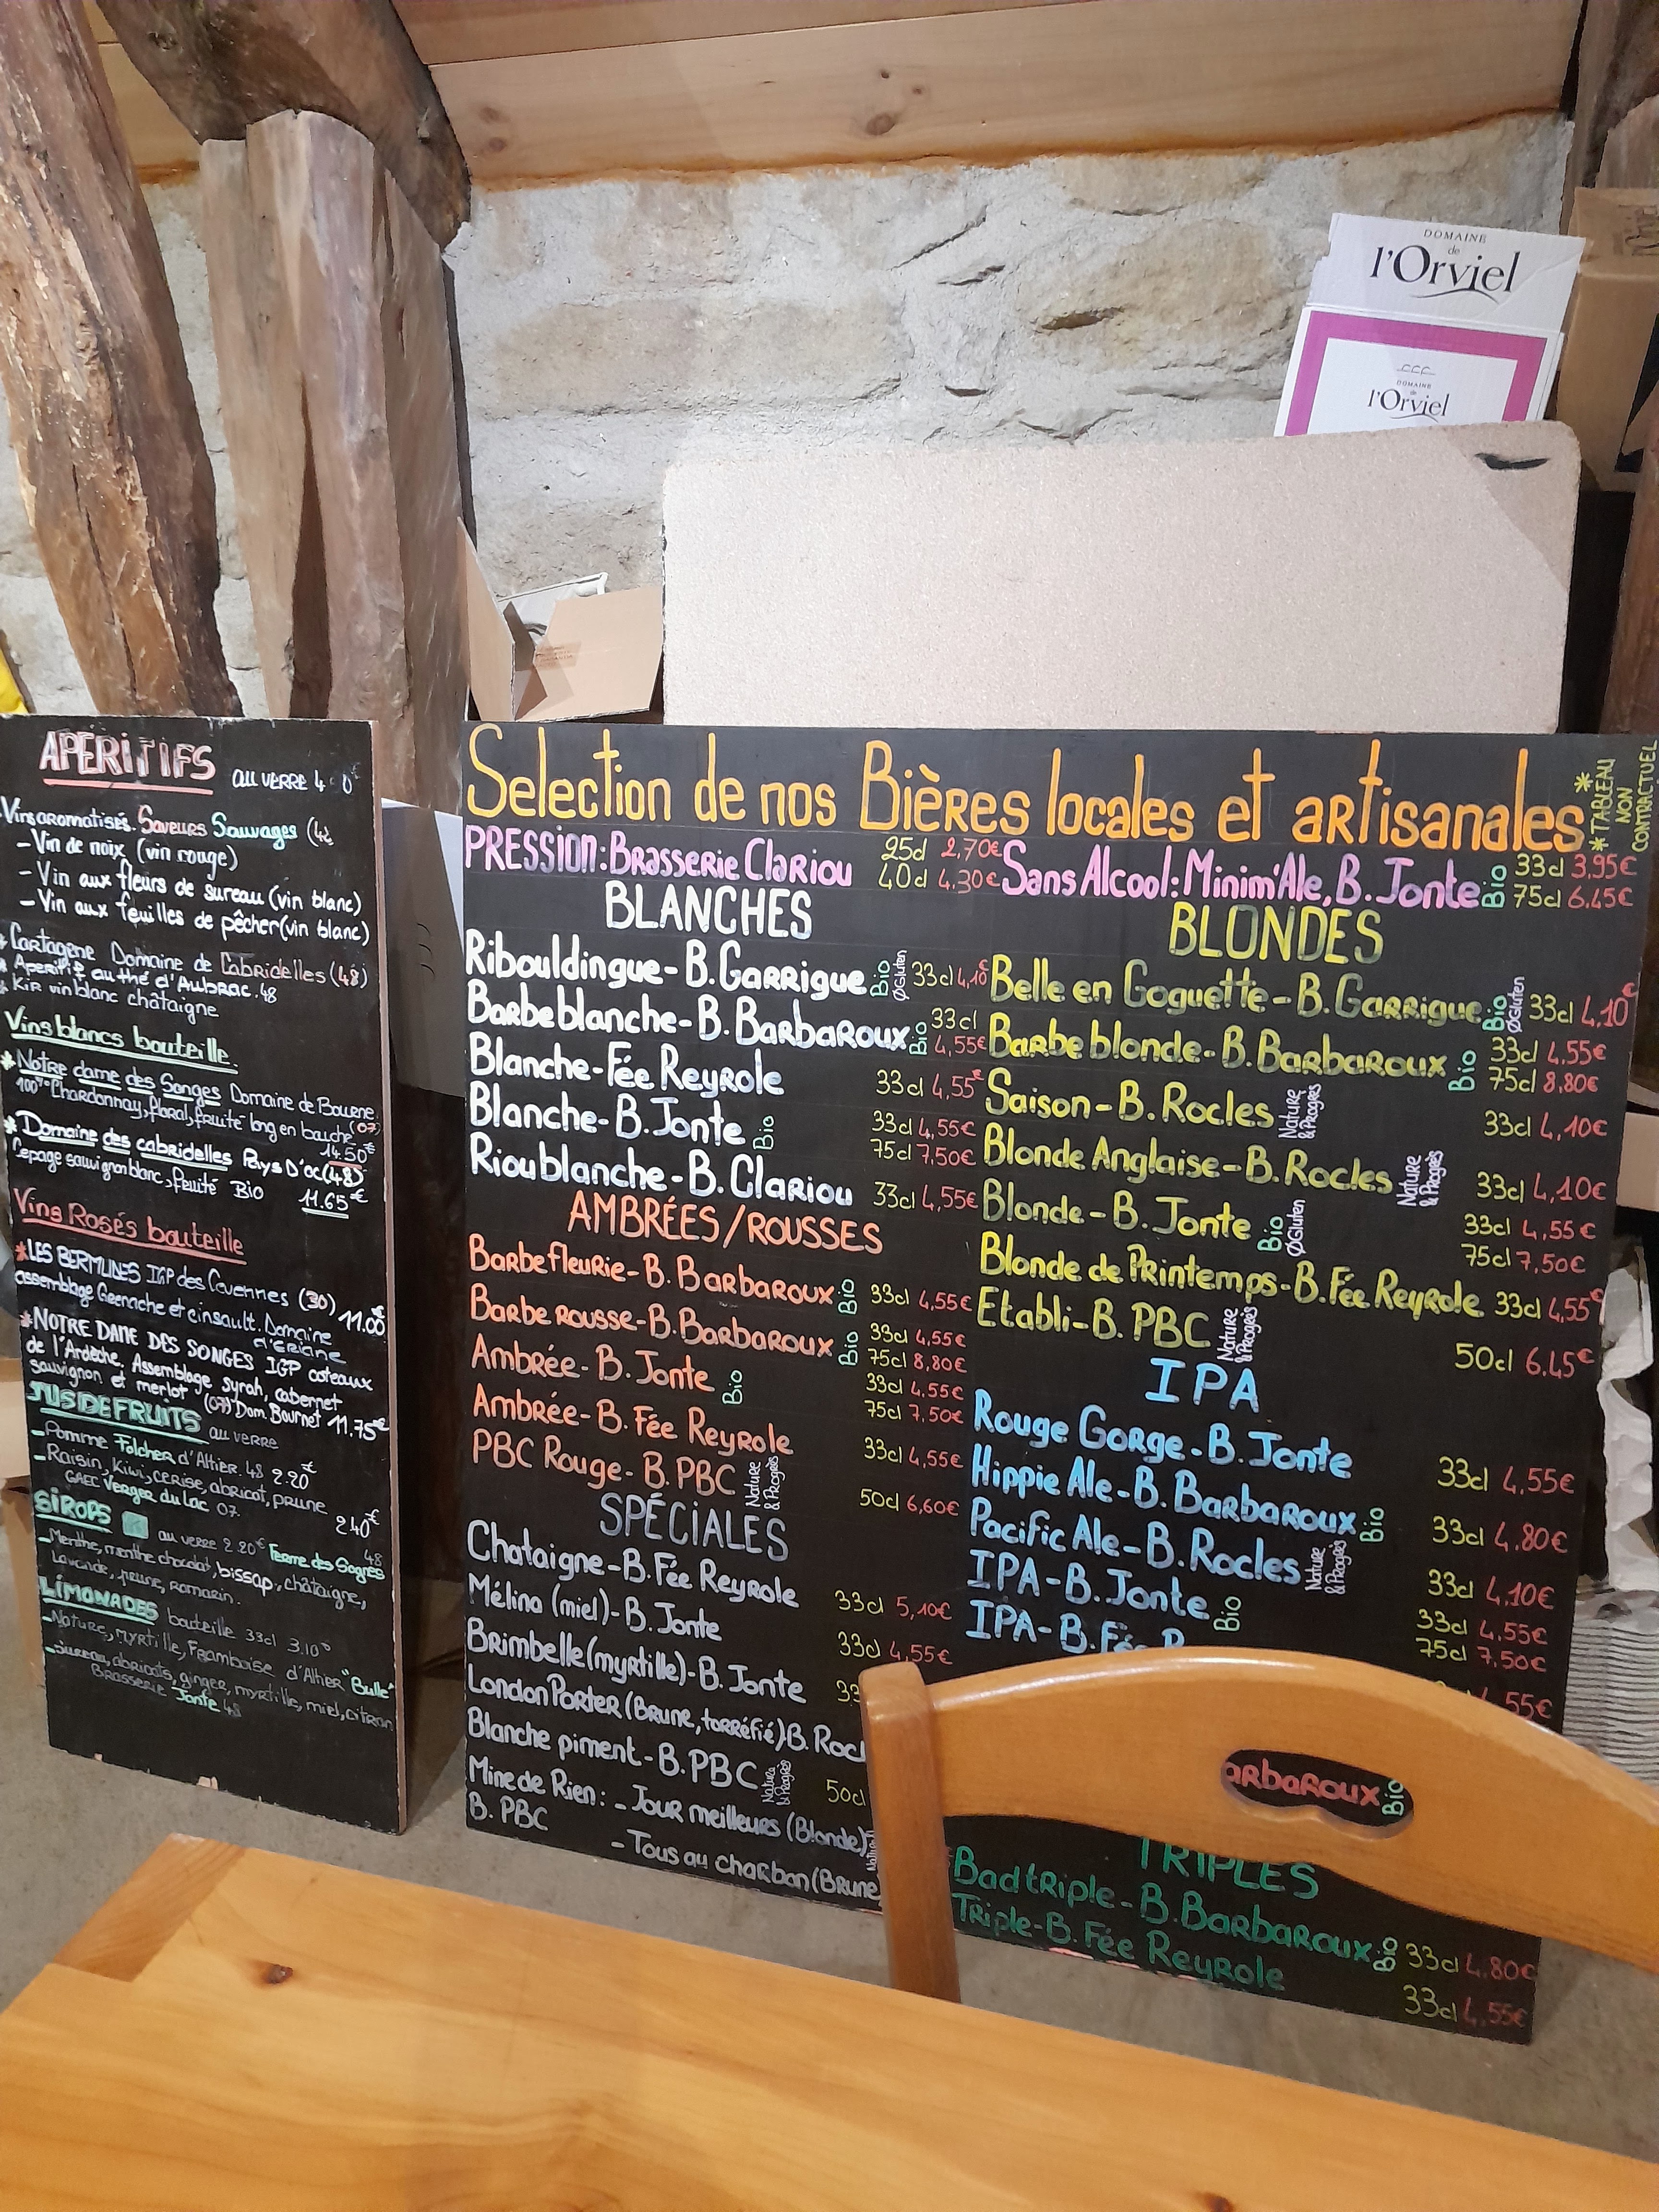 DOMAINE
de
l'Orviel
DOMAINE
de
l'Orviel
APERITIFS AU VERRE
Vins aromatisés. Saveurs Sauvages
- Vin de noix (vin rouge)
- Vin aux fleurs de sureau (vin blanc)
- Vin aux feuilles de pêcher (vin blanc)
* Cartagène Domaine de Cabridelles (48)
* Aperitif au thé d'Aubrac. 48
* Kir vin blanc châtaigne
Vins blancs bouteille.
* Notre dame des Songes Domaine de Bourne.
100% Chardonnay, floral, fruité long en bouche (07)
14.50€
* Domaine des cabridelles Pays D'oc (48)
Cepage sauvignon blanc, fruité Bio 11.65€
Vins Rosés bouteille
* LES BERMUDES IGP des Cévennes (30)
assemblage Grenache et cinsault. Domaine 11.00€
d'ERIANE
* NOTRE DAME DES SONGES IGP coteaux
de l'Ardèche, Assemblage, syrah, cabernet
sauvignon et merlot (07) Dom. Bournet 11.75€
JUS DE FRUITS au verre
- Pomme Folcher d'Altier. 48 2.20€
- Raisin, Kiwi, cerise, abricot, prune
GAEC Verger du lac 07. 2.40€
SIROPS au verre 2.20€ Ferme des Sagnes 48
- Menthe, menthe chocolat, bissap, châtaigne,
Lavande, prune, romarin.
LIMONADES bouteille 33cl 3.10€
- Nature, myrtille, Framboise d'Altier "Bulle"
- Sureau, abricots, ginger, myrtille, miel, citron
Brasserie Jonte 48
Selection de nos Bières locales et artisanales
* TABLEAU
* NON
CONTRACTUEL
PRESSION: Brasserie Clariou 25cl 2,70€
40cl 4.30€
Sans Alcool: Minim'Ale, B. Jonte Bio 33cl 3,95€
75cl 6.45€
BLANCHES
Ribouldingue - B. Garrigue Bio ØGluten 33cl 4,10€
Barbe blanche - B. Barbaroux Bio 33cl
4,55€
Blanche - Fée Reyrole 33cl 4,55€
Blanche - B. Jonte Bio 33cl 4,55€
75cl 7,50€
Rioublanche - B. Clariou 33cl 4,55€
AMBRÉES/ROUSSES
Barbe fleurie - B. Barbaroux Bio 33cl 4,55€
Barbe rousse - B. Barbaroux Bio 33cl 4,55€
75cl 8,80€
Ambrée - B. Jonte Bio 33cl 4.55€
75cl 7,50€
Ambrée - B. Fée Reyrole 33cl 4,55€
PBC Rouge - B. PBC Nature & Progrès 50cl 6,60€
SPÉCIALES
Chataigne - B. Fée Reyrole 33cl 5,10€
Mélina (miel) - B. Jonte 33cl 4,55€
Brimbelle (myrtille) - B. Jonte 33
London Porter (Brune, torréfié) B. Roc
Blanche piment - B. PBC Nature & Progrès 50cl
Mine de Rien: - Jour meilleurs (Blonde)
B. PBC - Tous au charbon (Brune
BLONDES
Belle en Goguette - B. Garrigue Bio ØGluten 33cl 4,10€
Barbe blonde - B. Barbaroux Bio 33cl 4.55€
75cl 8,80€
Saison - B. Rocles Nature & Progrès 33cl 4,10€
Blonde Anglaise - B. Rocles Nature & Progrès 33cl 4,10€
Blonde - B. Jonte Bio ØGluten 33cl 4,55€
75cl 7,50€
Blonde de Printemps - B. Fée Reyrole 33cl 4,55€
Etabli - B. PBC Nature & Progrès 50cl 6.45€
IPA
Rouge Gorge - B. Jonte 33cl 4,55€
Hippie Ale - B. Barbaroux Bio 33cl 4.80€
Pacific Ale - B. Rocles Nature & Progrès 33cl 4,10€
IPA - B. Jonte Bio 33cl 4.55€
75cl 7.50€
IPA - B. Fée 55€
arbaroux Bio
TRIPLES
Bad triple - B. Barbaroux Bio 33cl 4.80€
Triple - B. Fée Reyrole 33cl 4,55€